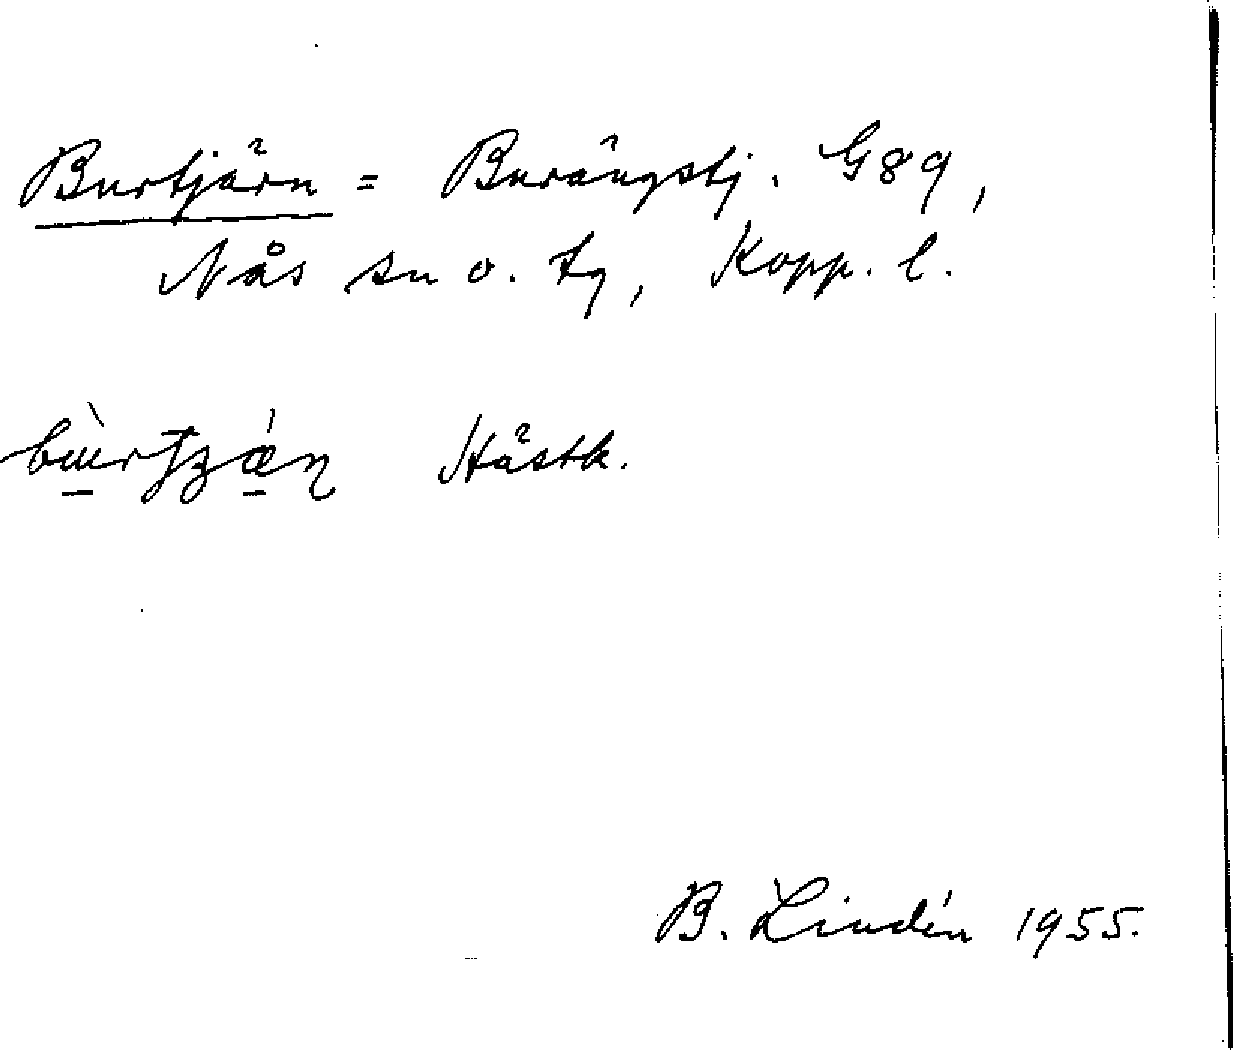 Burtjärn = Burängstj. G89,
Nås sn o. tg, Kopp. l.
Hästk.
B. Lindén 1955.